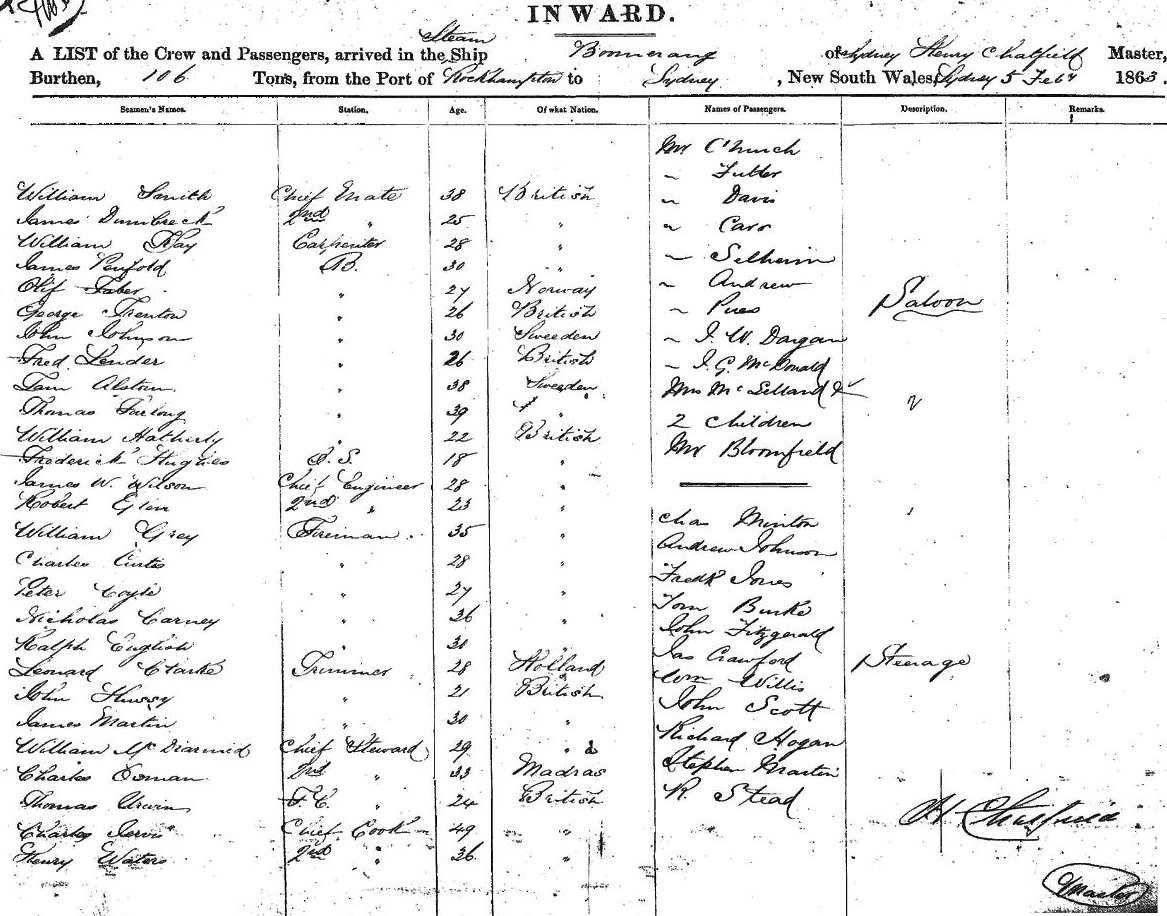 INWARD.
A LIST of the Crew and Passengers, arrived in the Steam Ship Boomerang of Sydney Henry Chatfield Master,
Burthen, 106 Tons, from the Port of Rockhampton to Sydney, New South Wales, Sydney 5 Feby 1863.
Seamen's Names. Station. Age. Of what Nation. Names of Passengers. Description. Remarks.
William Smith Chief Mate 38 British
James Dumbreck 2nd " 25 "
William Kay Carpenter 28 "
James Penfold AB. 30 "
Olif Faber " 27 Norway
George Trenton " 26 British
John Johnson " 30 Sweeden
Fred Lender " 26 British
38 Sweeden
Thomas Furlong " 39 "
William Hatherly " 22 British
Frederick Hughes O.S. 18 "
James W. Wilson Chief Engineer 28 "
Robert Glen 2nd " 23 "
William Grey Fireman 35 "
Charles Curtis " 28 "
Peter Coyle " 27 "
Nicholas Carney " 36 "
Ralph English " 30 "
Leonard Clarke Trimmer 28 Holland
John Hussy " 21 British
James Martin " 30 "
William McDiarmid Chief Steward 29 "
Charles Osman 2nd " 33 Madras
Thomas Urwin F.C. " 24 British
Charles Jervis Chief Cook 49 "
Henry Waters 2nd " 36 "
Mr Church
" Fuller
" Davis
" Caro
" Selheim
" Andrew
"
" J. W. Dargan
" J. G. McDonald
Mrs McLelland &
2 Children
Mr Bloomfield
Saloon
"
Chas Minton
Andrew Johnson
Fredk Jones
Tom Burke
John Fitzgerald
Jas Crawford
Wm Willis
John Scott
Richard Hogan
Stephen Martin
R. Stead
Steerage
H Chatfield
Master